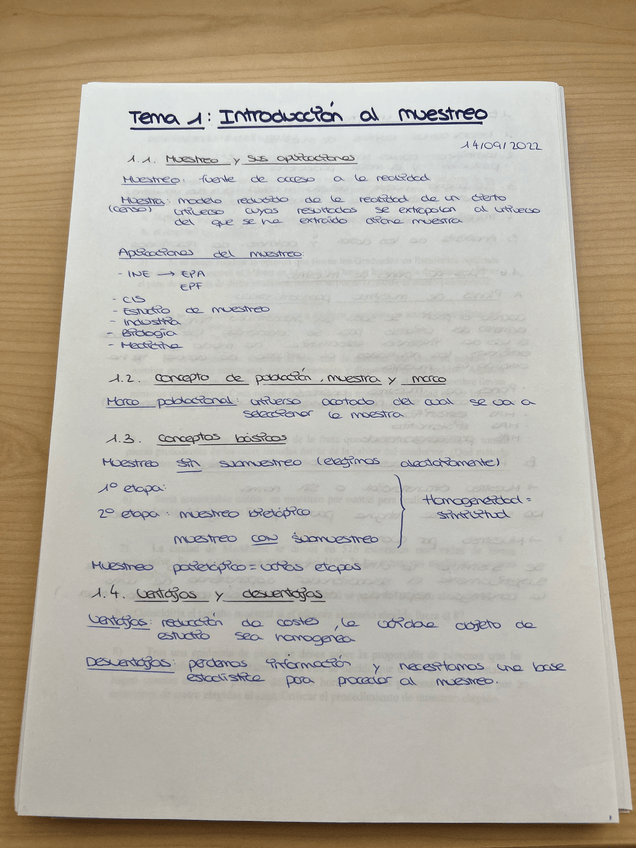 Tema 1: Introducción al muestreo
14/09/2022
1.1. Muestreo y sus aplicaciones
Muestreo: fuente de acceso a la realidad
Muestra: modelo reducido de la realidad de un cierto
(censo) universo cuyos resultados se extrapolan al universo
del que se ha extraído dicha muestra
Aplicaciones del muestreo
- INE → EPA
EPF
- CIS
- Estudio de muestreo
- Industria
- Biología
- Medicina
1.2. Concepto de población, muestra y marco
Marco poblacional: universo acotado del cual se va a
seleccionar la muestra
1.3. Conceptos básicos
Muestreo sin submuestreo (elegimos aleatoriamente)
1º etapa:
2º etapa: muestreo bietápico
muestreo con submuestreo
Homogeneidad =
similitud
Muestreo polietápico = varias etapas
1.4. Ventajas y desventajas
Ventajas: reducción de costes, la variable objeto de
estudio sea homogenea
Desventajas: perdemos información y necesitamos una base
estadística para proceder al muestreo.